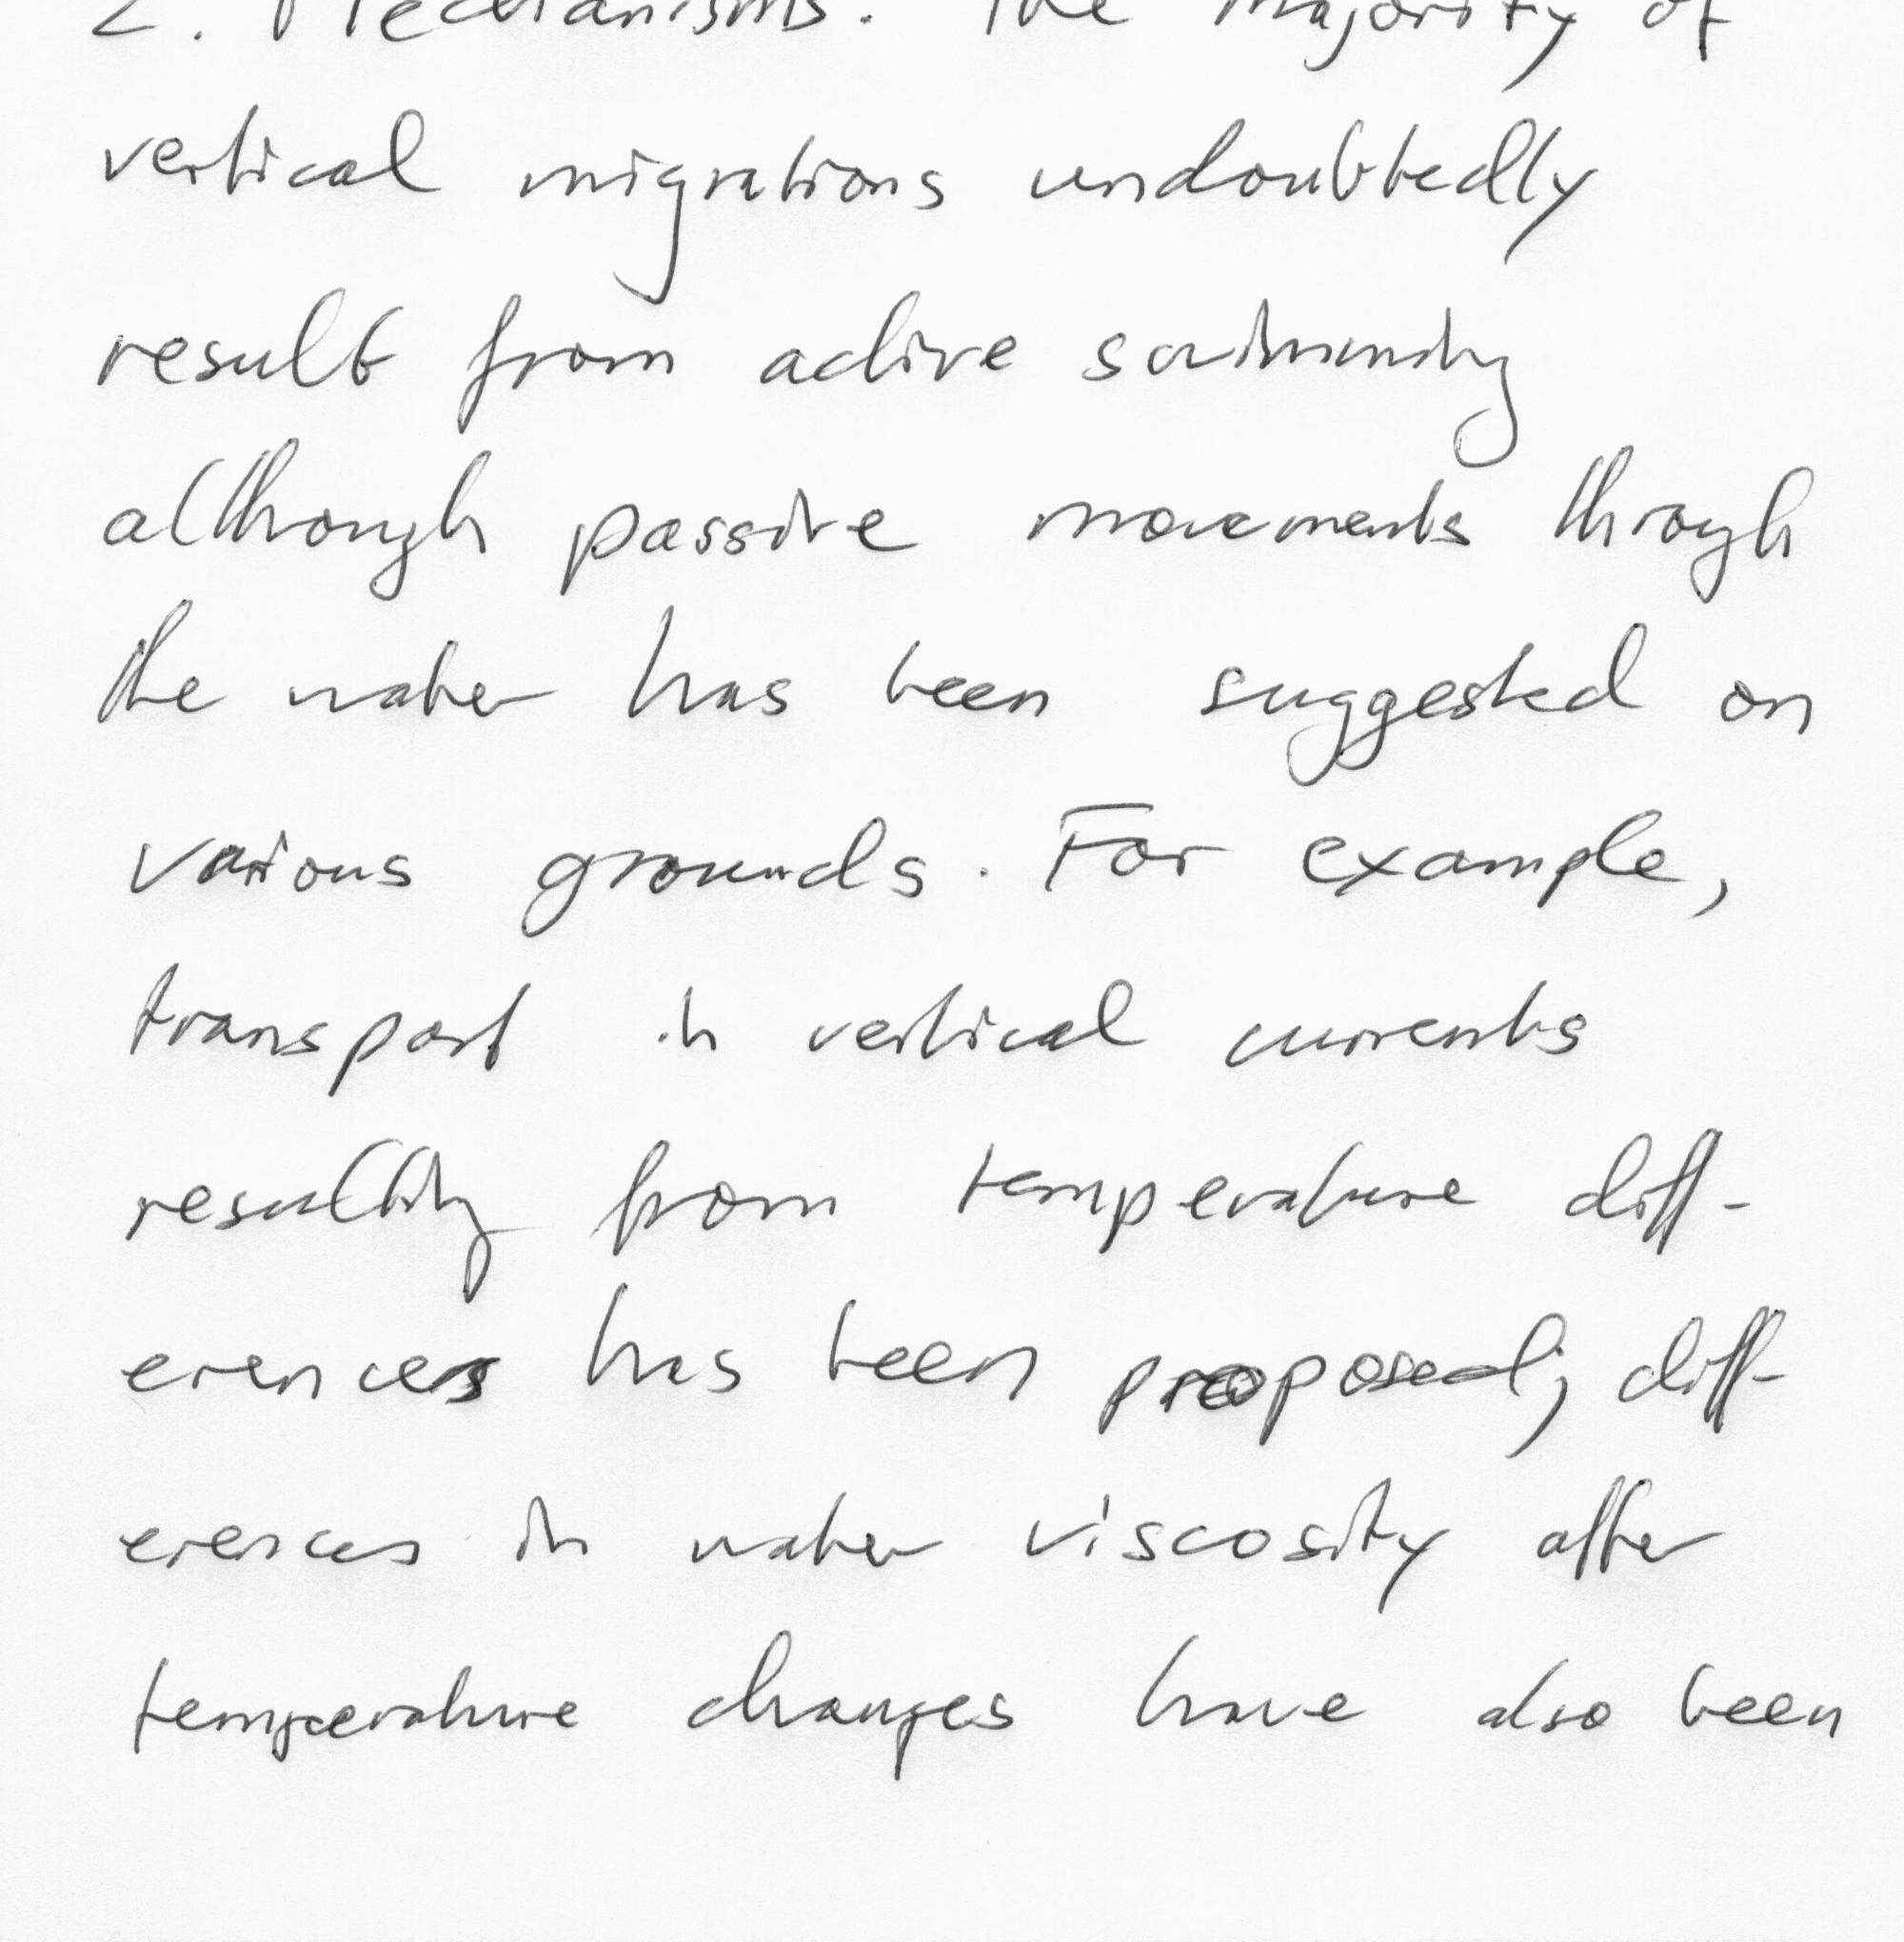 2. Mechanisms. The majority of
vertical migrations undoubtedly
result from active swimming
although passive movements throgh
the water has been suggested on
various grounds. For example,
transport in vertical currents
resulting from temperature diff-
erences has been proposed; diff-
erences in water viscosity after
temperature changes have also been